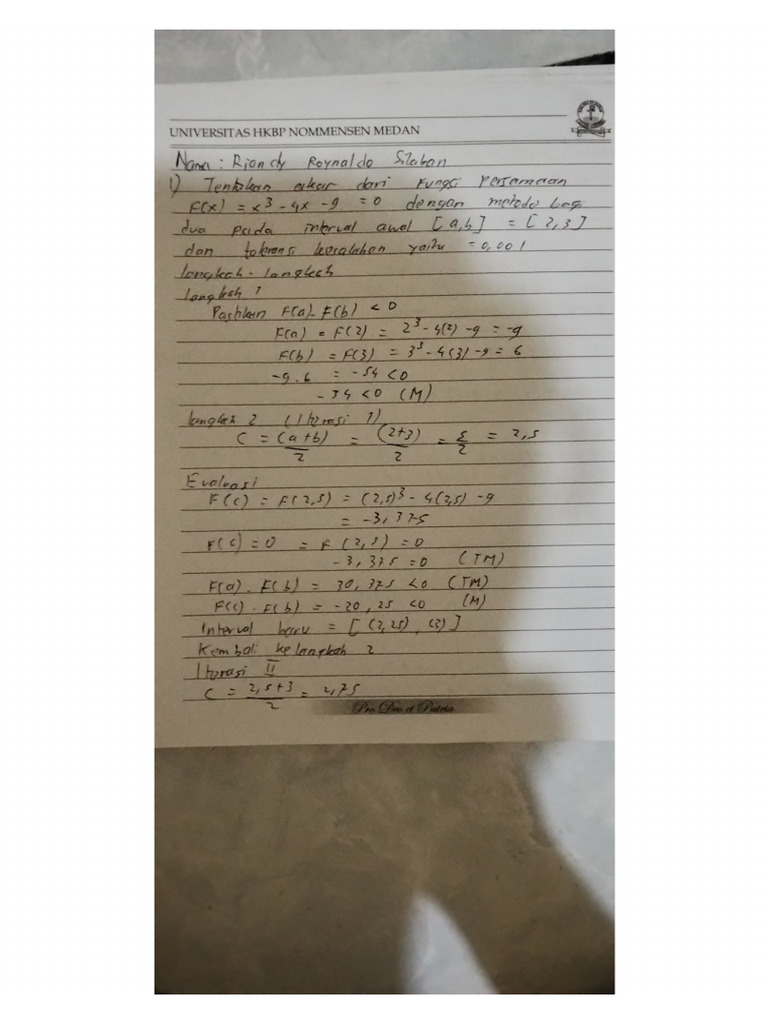 UNIVERSITAS HKBP NOMMENSEN MEDAN
Nama : Riandy Roynaldo Silaban
1) Tentukan akar dari fungsi Persamaan
F(x) = x³ - 4x - 9 = 0 dengan metode bagi
dua pada interval awal [a,b] = [2,3]
dan toleransi kesalahan yaitu = 0,001
langkah - langkah
langkah 1
Pastikan F(a) - F(b) < 0
F(a) = F(2) = 2³ - 4(2) - 9 = -9
F(b) = F(3) = 3³ - 4(3) - 9 = 6
-9 . 6 = -54 < 0
-54 < 0 (M)
langkah 2 (Iterasi 1)
C = (a+b)/2 = (2+3)/2 = 5/2 = 2,5
Evaluasi
F(c) = F(2,5) = (2,5)³ - 4(2,5) - 9
= -3,375
F(c) = 0 = F(2,5) = 0
-3,375 = 0 (TM)
F(a) . F(b) = 30,375 < 0 (TM)
F(c) . F(b) = -20,25 < 0 (M)
Interval baru = [(2,25), (3)]
Kembali ke langkah 2
Iterasi II
C = 2,5+3/2 = 2,75
Pro Deo et Patria